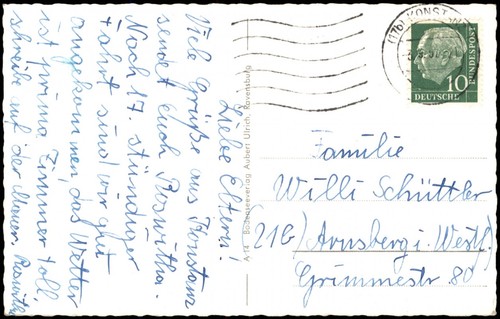 Liebe Eltern!
Viele Grüße aus Konstanz
sendet euch Roswitha.
Nach 17. stündiger
Fahrt sind wir gut
angekommen, das Wetter
ist prima Zimmer toll,
schreibe auf der Mauer. Roswitha
A-14 Bodenseeverlag Aubert Ulrich, Ravensburg
(17b) KONST
10
DEUTSCHE
BUNDESPOST
Familie
Willi Schüttler
(21b) Arnsberg i. Westf.
Grimmestr. 80